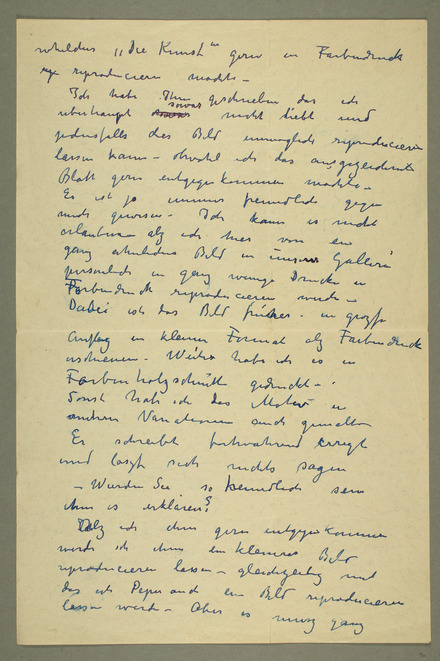 welches "Die Kunst" gern in Farbendruck
reproducieren möchte –
Ich habe Ihm geschrieben das ich
überhaupt sowas nicht liebt und
jedenfalls das Bild unmöglich reproducieren
lassen kann – obwohl ich das ausgezeichnete
Blatt gern entgegenkommen möchte –
Es ist ja immer freundlich gegen
mich gewesen – Ich kann es nicht
erlauben als ich hier von ein
ganz ähnliches Bild in unser Gallerie
persönlich in ganz wenige Drucke in
Farbendruck reproducieren werde –
Dabei ist das Bild früher in grosse
Auflag in kleiner Format als Farbendruck
erschienen – Weiter habe ich es in
Farbenholzschnitt gedruckt –
Sonst hab ich das Motiv in
andren Variationen auch gemalt
Er schreibt fortwährend erregt
und lasst sich nichts sagen
– Würden Sie so freundlich sein
ihm es erklären?
ich ihm gern entgegenkommen
werde ich ihm ein kleineres Bild
reproducieren lassen – gleichzeitig mit
das ich Piper auch ein Bild reproducieren
lassen werde – Aber es muss ganz